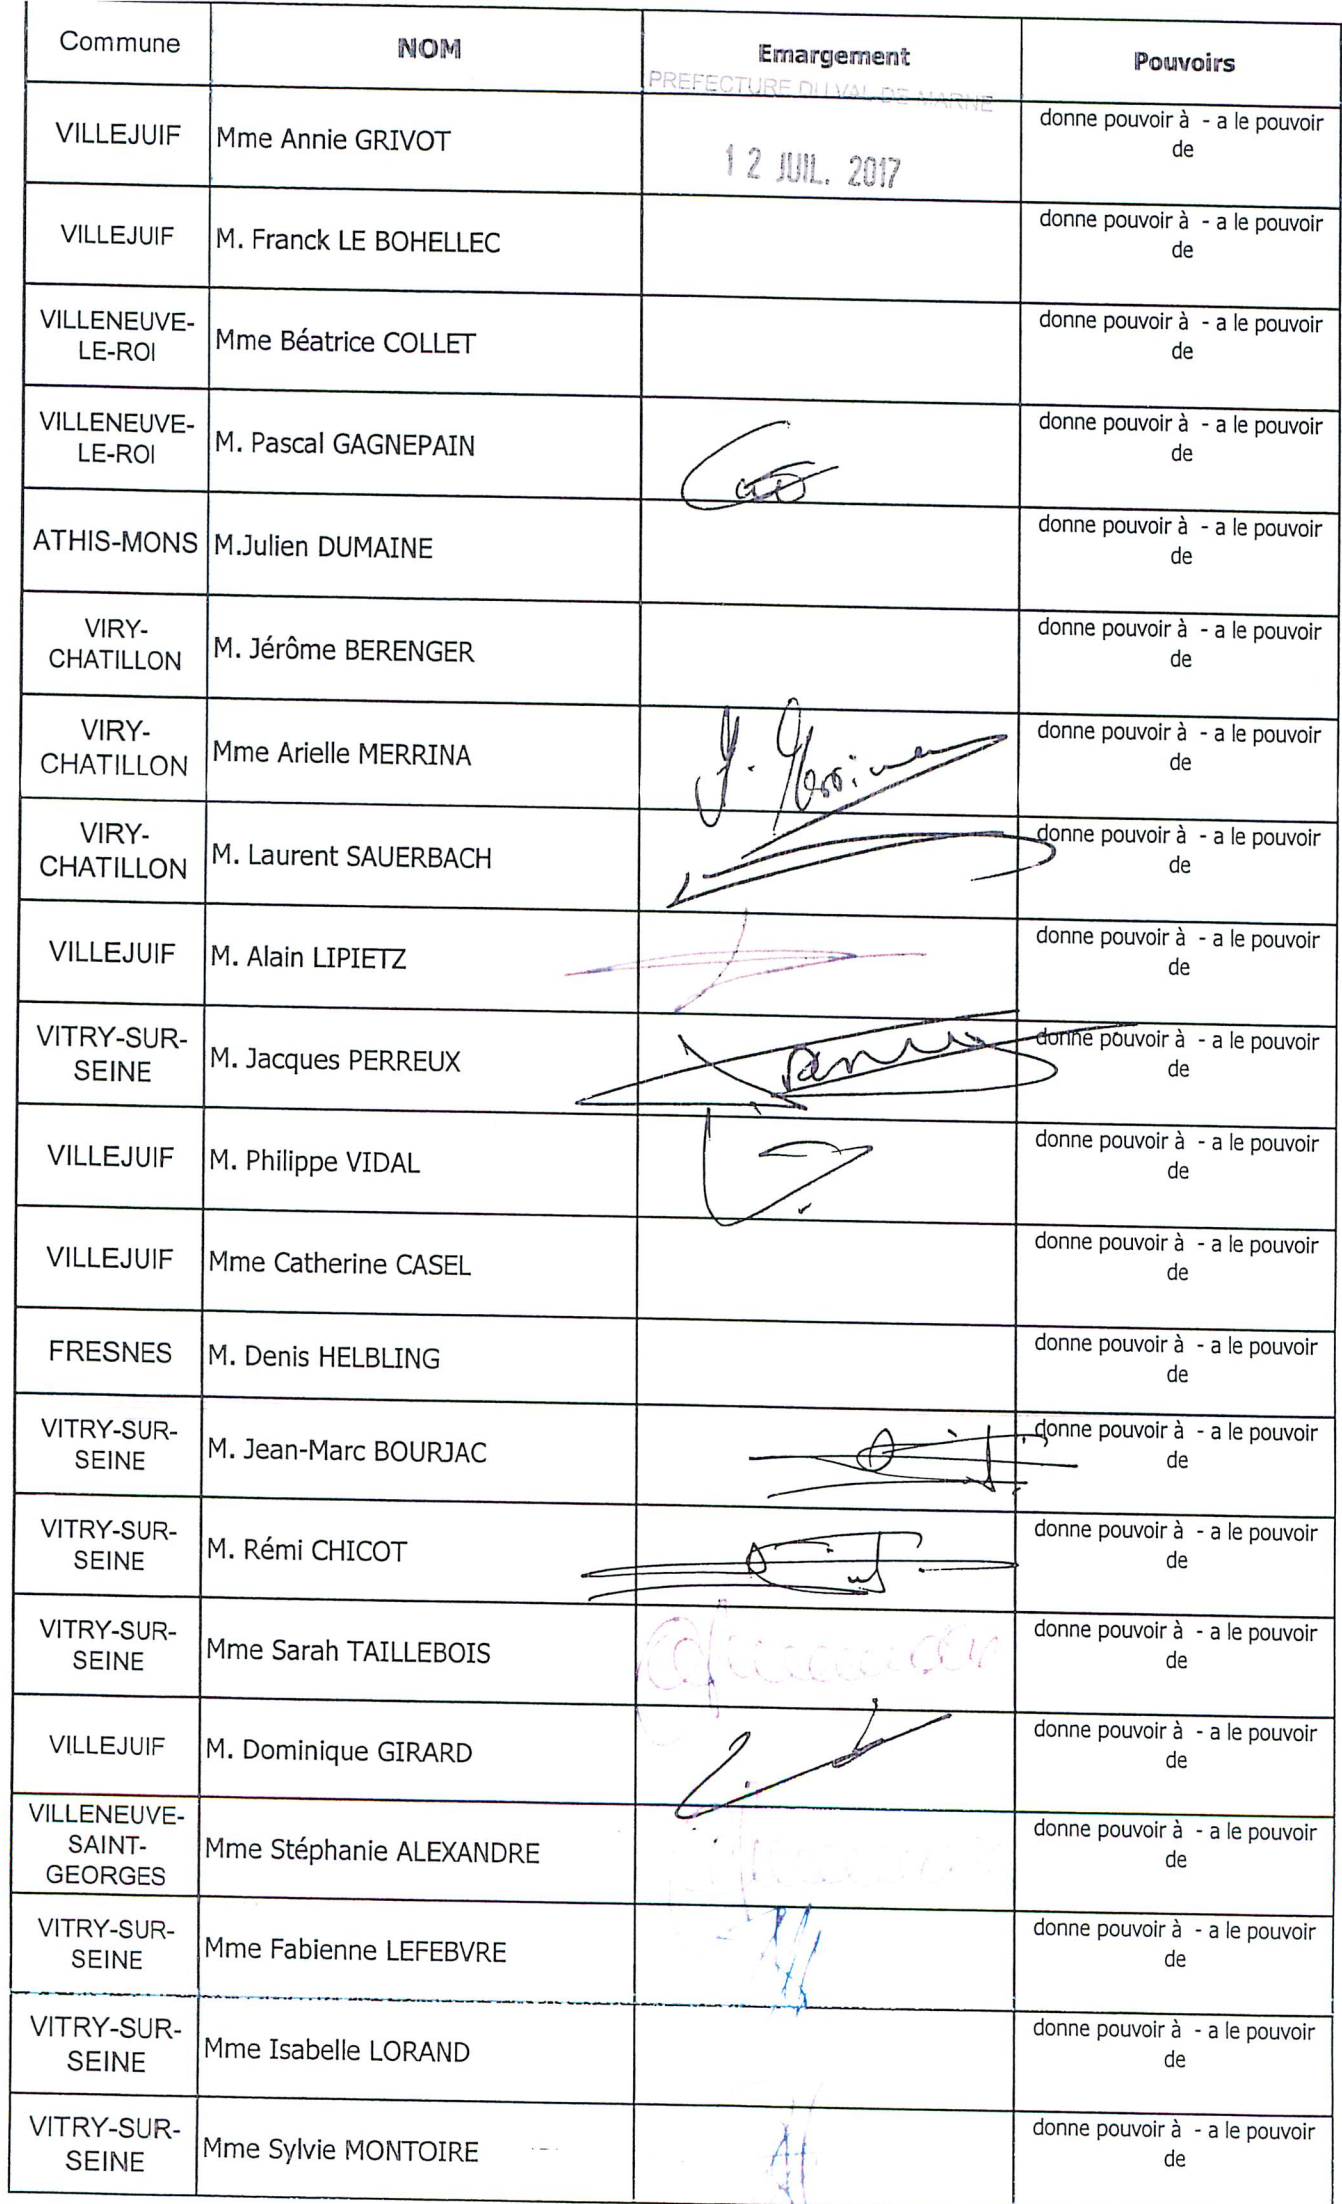 Commune NOM Emargement Pouvoirs
PREFECTURE DU VAL DE MARNE
VILLEJUIF Mme Annie GRIVOT 12 JUIL. 2017 donne pouvoir à - a le pouvoir
de
VILLEJUIF M. Franck LE BOHELLEC donne pouvoir à - a le pouvoir
de
VILLENEUVE-
LE-ROI Mme Béatrice COLLET donne pouvoir à - a le pouvoir
de
VILLENEUVE-
LE-ROI M. Pascal GAGNEPAIN donne pouvoir à - a le pouvoir
de
ATHIS-MONS M.Julien DUMAINE donne pouvoir à - a le pouvoir
de
VIRY-
CHATILLON M. Jérôme BERENGER donne pouvoir à - a le pouvoir
de
VIRY-
CHATILLON Mme Arielle MERRINA donne pouvoir à - a le pouvoir
de
VIRY-
CHATILLON M. Laurent SAUERBACH donne pouvoir à - a le pouvoir
de
VILLEJUIF M. Alain LIPIETZ donne pouvoir à - a le pouvoir
de
VITRY-SUR-
SEINE M. Jacques PERREUX donne pouvoir à - a le pouvoir
de
VILLEJUIF M. Philippe VIDAL donne pouvoir à - a le pouvoir
de
VILLEJUIF Mme Catherine CASEL donne pouvoir à - a le pouvoir
de
FRESNES M. Denis HELBLING donne pouvoir à - a le pouvoir
de
VITRY-SUR-
SEINE M. Jean-Marc BOURJAC donne pouvoir à - a le pouvoir
de
VITRY-SUR-
SEINE M. Rémi CHICOT donne pouvoir à - a le pouvoir
de
VITRY-SUR-
SEINE Mme Sarah TAILLEBOIS donne pouvoir à - a le pouvoir
de
VILLEJUIF M. Dominique GIRARD donne pouvoir à - a le pouvoir
de
VILLENEUVE-
SAINT-
GEORGES Mme Stéphanie ALEXANDRE donne pouvoir à - a le pouvoir
de
VITRY-SUR-
SEINE Mme Fabienne LEFEBVRE donne pouvoir à - a le pouvoir
de
VITRY-SUR-
SEINE Mme Isabelle LORAND donne pouvoir à - a le pouvoir
de
VITRY-SUR-
SEINE Mme Sylvie MONTOIRE donne pouvoir à - a le pouvoir
de